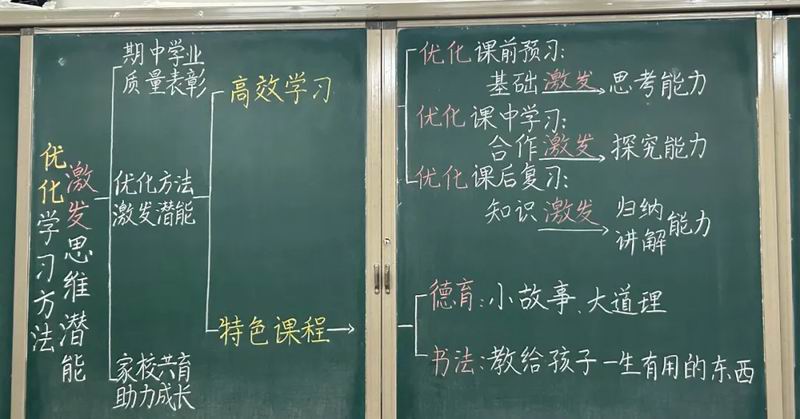 优化学习方法
激发思维潜能
期中学业
质量表彰
优化方法
激发潜能
家校共育
助力成长
高效学习
特色课程
优化课前预习:
基础 激发 思考能力
优化课中学习:
合作 激发 探究能力
优化课后复习:
知识 激发 归纳
讲解 能力
德育:小故事、大道理
书法:教给孩子一生有用的东西